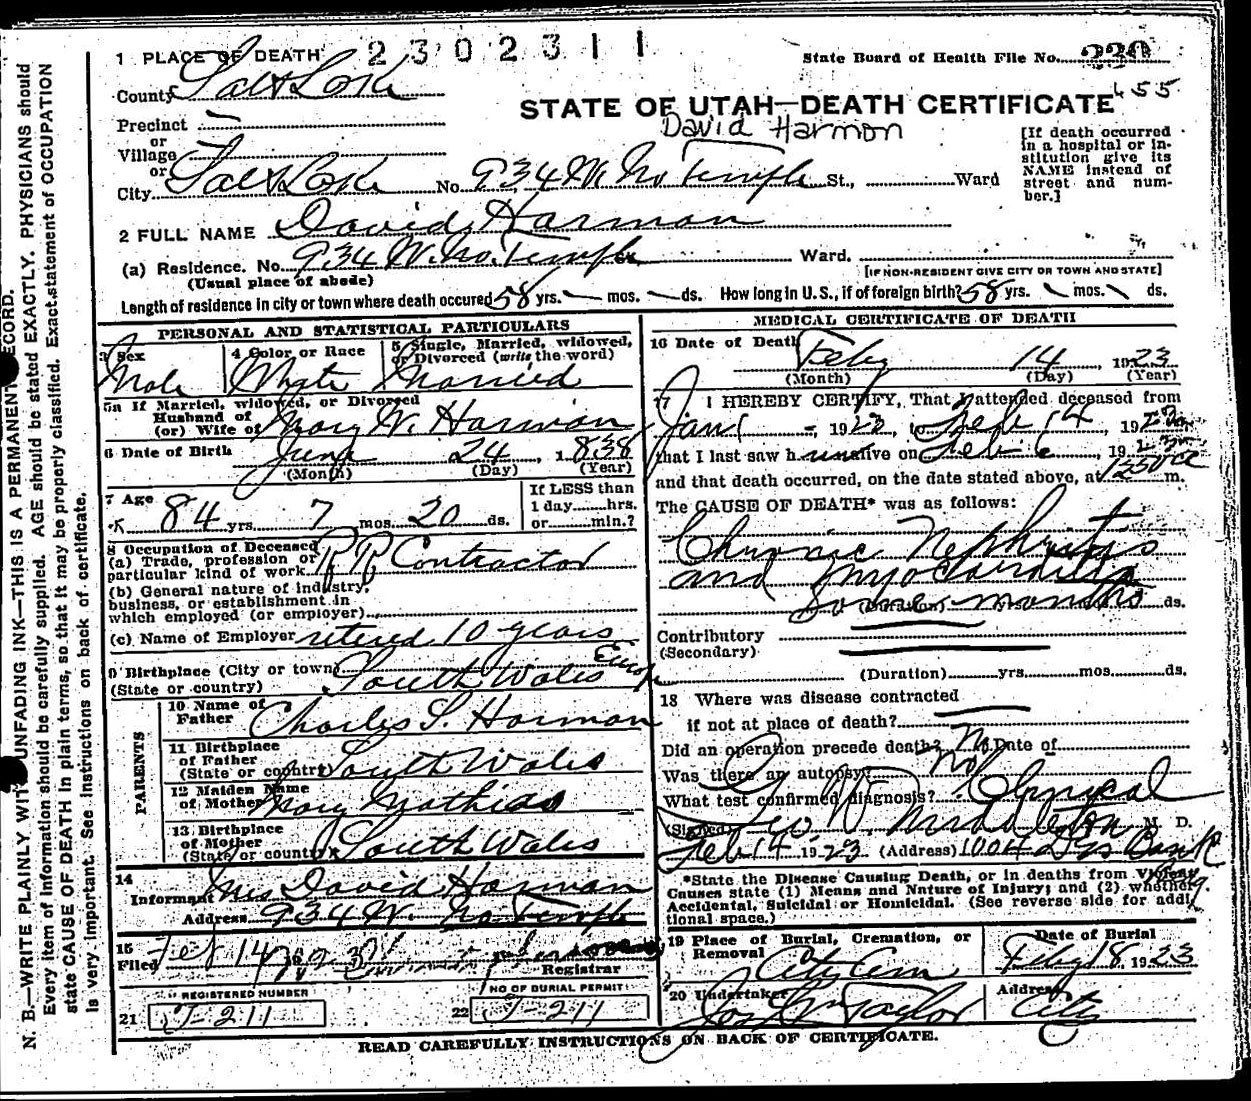 2302311
1 PLACE OF DEATH
State Board of Health File No. 220
455
County Salt Lake
STATE OF UTAH—DEATH CERTIFICATE
David Harmon
Precinct
or
Village
or
City Salt Lake No. 934 W. No Temple St., Ward
[If death occurred in a hospital or institution give its NAME instead of street and number.]
2 FULL NAME David Harmon
(a) Residence. No. 934 W. No. Temple Ward.
(Usual place of abode)
[IF NON-RESIDENT GIVE CITY OR TOWN AND STATE]
Length of residence in city or town where death occured 58 yrs. — mos. — ds. How long in U. S., if of foreign birth? 58 yrs. mos. ds.
PERSONAL AND STATISTICAL PARTICULARS
3 Sex
Male
4 Color or Race
White
5 Single, Married, widowed, or Divorced (write the word)
Married
5a If Married, widowed, or Divorced
Husband of
(or) Wife of Mary W. Harmon
6 Date of Birth June 24, 1838
(Month) (Day) (Year)
7 Age
84 yrs. 7 mos. 20 ds.
If LESS than
1 day......hrs.
or......min.?
8 Occupation of Deceased
(a) Trade, profession or
particular kind of work R R Contractor
(b) General nature of industry,
business, or establishment in
which employed (or employer)
(c) Name of Employer retered 10 years
9 Birthplace (City or town)
(State or country) South Wales Europe
PARENTS
10 Name of
Father Charles S. Harmon
11 Birthplace
of Father
(State or country) South Wales
12 Maiden Name
of Mother Mary Mathias
13 Birthplace
of Mother
(State or country) South Wales
14
Informant Mrs David Harman
Address 934 W. No Temple
15
Filed Feb 14
Registrar
REGISTERED NUMBER
21 J-211
NO OF BURIAL PERMIT
22 J-211
MEDICAL CERTIFICATE OF DEATH
16 Date of Death Feby 14, 1923
(Month) (Day) (Year)
17 I HEREBY CERTIFY, That I attended deceased from
Jan 1 , 1923, to Feb 14, 192
that I last saw h alive on Feb , 19
and that death occurred, on the date stated above, at m.
The CAUSE OF DEATH* was as follows:
Chronic Nephritis
and myocarditis
Some months
(Duration) ds.
Contributory
(Secondary)
(Duration)......yrs......mos......ds.
18 Where was disease contracted
if not at place of death?
Did an operation precede death? No Date of
Was there an autopsy? No
What test confirmed diagnosis? Clinical
(Signed) Geo W Middleton M. D.
Feb 14 1923 (Address) 1004 Bank
*State the Disease Causing Death, or in deaths from Violent
Causes state (1) Means and Nature of Injury; and (2) whether
Accidental, Suicidal or Homicidal. (See reverse side for addi-
tional space.)
19 Place of Burial, Cremation, or
Removal City Cem
Date of Burial
Feby 18, 1923
20 Undertaker Taylor
Address City
READ CAREFULLY INSTRUCTIONS ON BACK OF CERTIFICATE.
N. B.—WRITE PLAINLY WITH UNFADING INK—THIS IS A PERMANENT RECORD.
Every item of information should be carefully supplied. AGE should be stated EXACTLY. PHYSICIANS should
state CAUSE OF DEATH in plain terms, so that it may be properly classified. Exact statement of OCCUPATION
is very important. See instructions on back of certificate.